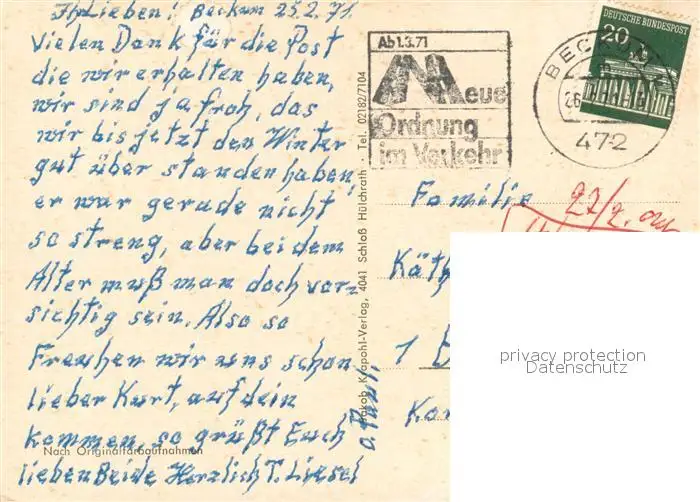 Ihr Lieben! Beckum 25.2.71.
Vielen Dank für die Post
die wir erhalten haben,
wir sind ja froh, das
wir bis jetzt den Winter
gut über standen haben,
er war gerade nicht
so streng, aber bei dem
Alter muß man doch vor-
sichtig sein. Also so
Freuhen wir uns schon
lieber Kurt, auf dein
kommen, so grüßt Euch
lieben Beide Herzlich T. Liesel
o. Paul.
Nach Originalfarbaufnahmen
Jakob Krapohl-Verlag, 14041 Schloß Hülchrath · Tel. 02182/7104
Ab 1.3.71
Neue
Ordnung
im Verkehr
BECKUM
26.
472
DEUTSCHE BUNDESPOST
20
Familie
22/2.
Käth
1
privacy protection
Datenschutz